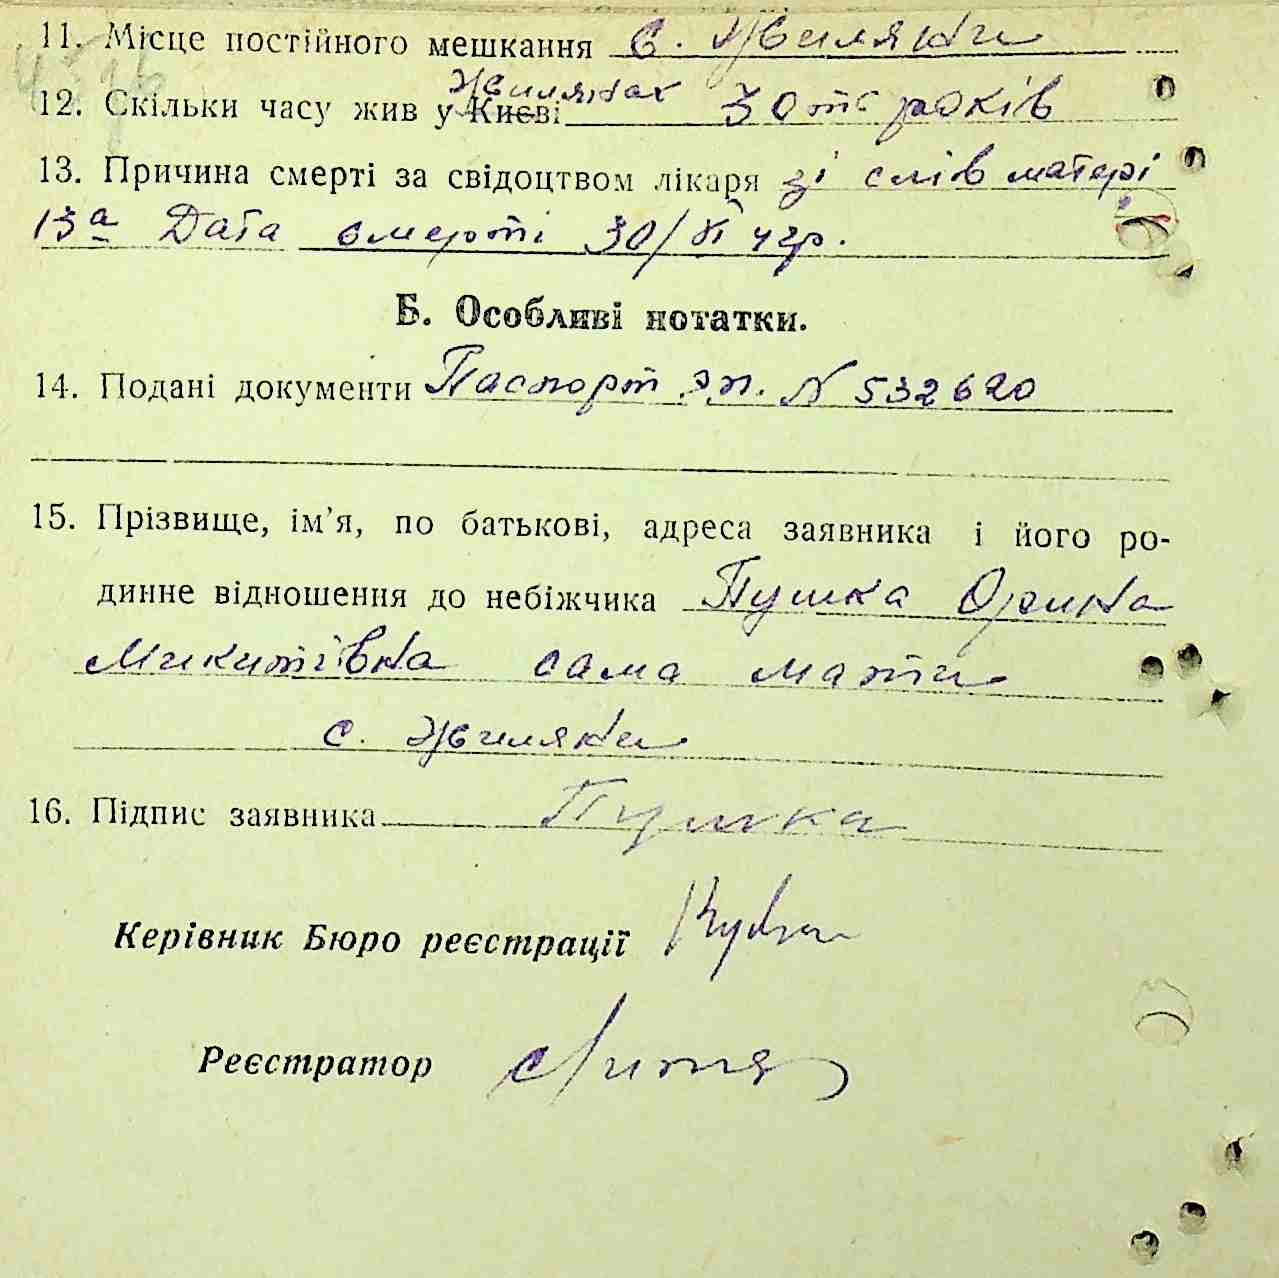 11. Місце постійного мешкання с. Жиляни
Жилянах
12. Скільки часу жив у Києві 30ть років
13. Причина смерті за свідоцтвом лікаря зі слів матері
13а Дата смерті 30/ 42р.
Б. Особливі нотатки.
14. Подані документи Паспорт N 532620
15. Прізвище, ім’я, по батькові, адреса заявника і його ро-
динне відношення до небіжчика Пушка Орина
Микитівна сама мати
с. Жиляни
16. Підпис заявника Пушка
Керівник Бюро реєстрації
Реєстратор